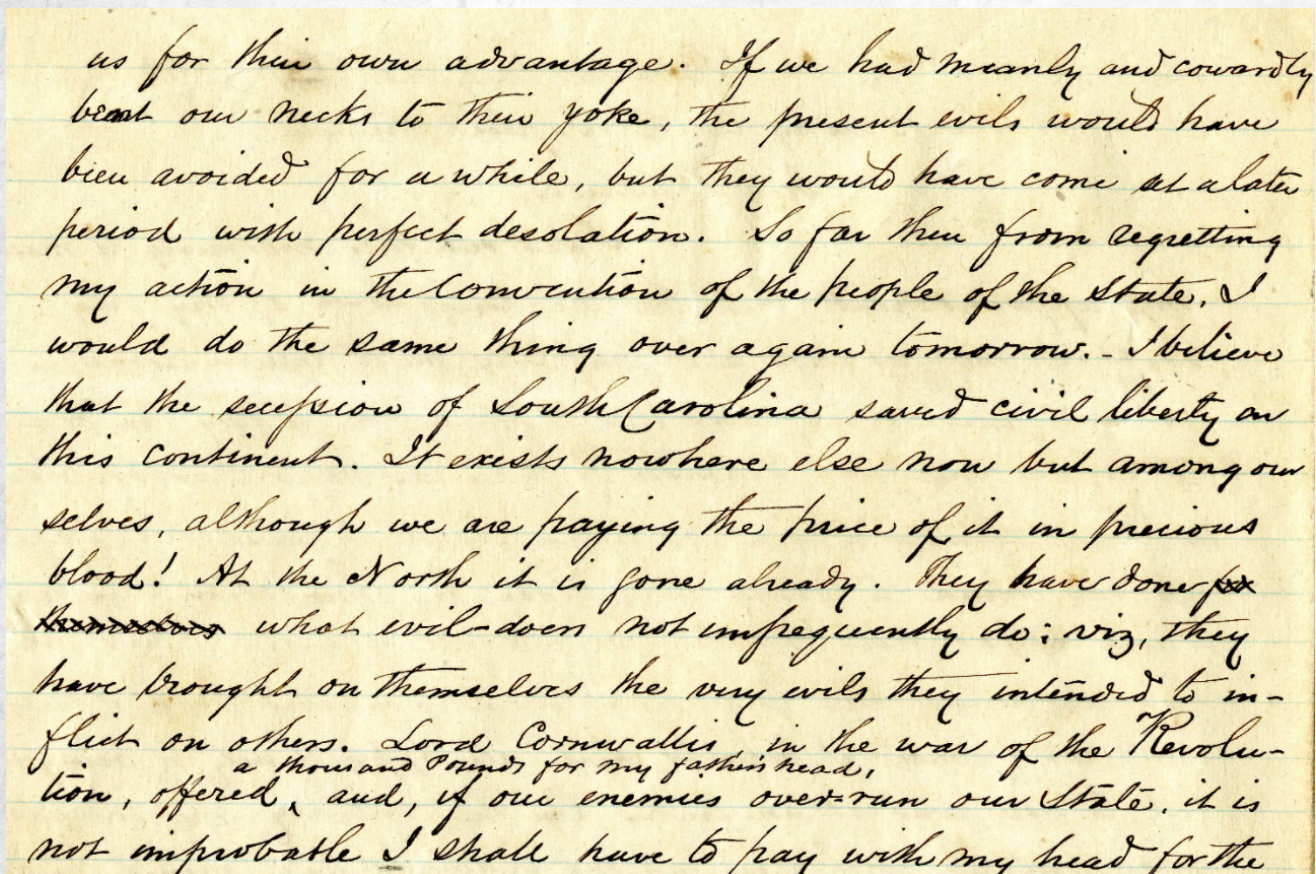 us for their own advantage. If we had meanly and cowardly
bent our necks to their yoke, the present evils would have
been avoided for a while, but they would have come at a later
period with perfect desolation. So far then from regretting
my action in the Convention of the people of the State, I
would do the same thing over again tomorrow. - I believe
that the secession of South Carolina saved civil liberty on
this continent. It exists nowhere else now but among our
selves, although we are paying the price of it in precious
blood! At the North it is gone already. They have done for
themselves what evil-doers not unfrequently do; viz, they
have brought on themselves the very evils they intended to in-
flict on others. Lord Cornwallis, in the war of the Revolu-
a thousand Pounds for my father's head,
tion, offered, and, if our enemies over-run our State, it is
not improbable I shall have to pay with my head for the